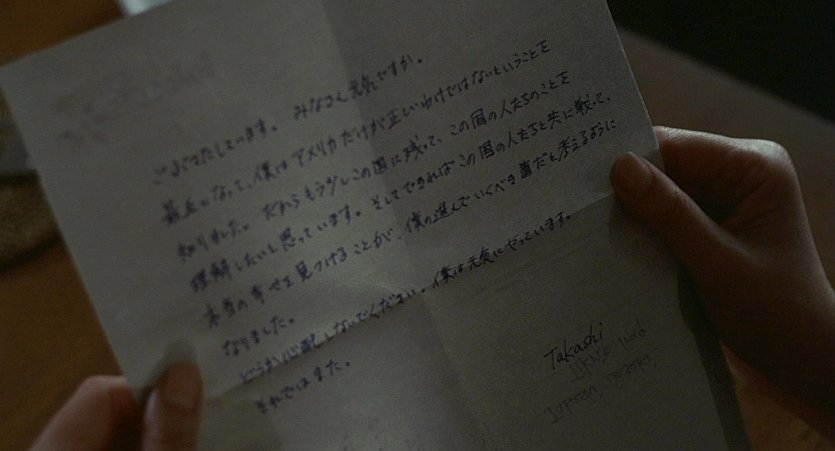 ごぶさたしています。 みなさん元気ですか。
最近になって、僕はアメリカだけが正しいわけではないということを
知りました。 だからもう少しこの国に残って、この国の人たちのことを
理解したいと思っています。そしてできればこの国の人たちと共に戦って、
本当の幸せを見つけることが、僕の進んでいくべき道だと考えるように
なりました。
どうか心配しないでください。僕は元気にやっています。
それではまた。
Takashi